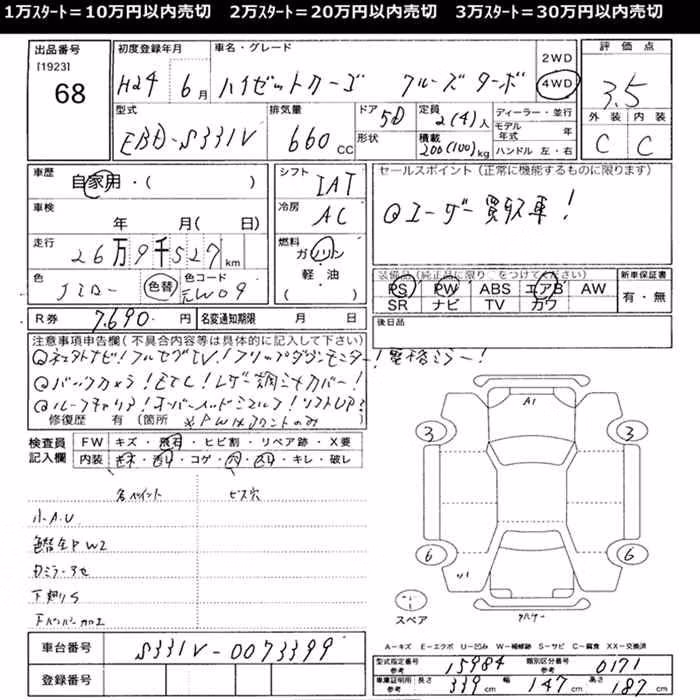 1万スタート＝10万円以内売切　2万スタート＝20万円以内売切　3万スタート＝30万円以内売切
出品番号
[1923]
68
初度登録年月
H24 6月
車名・グレード
ハイゼットカーゴ クルーズターボ
2WD
4WD
評価点
3.5
外装 内装
C C
型式
EBD-S331V
排気量
660 CC
ドア 5D
形状
定員
2(4)人
積載
200(100)kg
ディーラー・並行
モデル年式 年
ハンドル 左・右
車歴
自家用・( )
車検
年 月( 日)
走行
26万9千527km
色
色替
色コード
シフト
IAT
冷房
AC
燃料
ガソリン
軽・油
( )
セールスポイント (正常に機能するものに限ります)
◎ユーザー買取車！
装備品(純正品に限り○をつけてください)
PS PW ABS エアB AW
SR ナビ TV カワ
新車保証書
有・無
後日品
R券 7,690-円
名変通知期限 月 日
注意事項申告欄(不具合内容等は具体的に記入して下さい)
◎ネットナビ！フルセグTV！フリップダウンモニター！電格ミラー！
◎バックカメラ！ETC！レザー調シートカバー！
修復歴 有 (箇所
検査員記入欄
FW キズ・飛石・ヒビ割・リペア跡・X要
内装 キズ・汚れ・コゲ・穴・スレ・キレ・破レ
ビス穴
小A.U
下廻りS
A1
3 3
6 6
スペア
A－キズ E－エクボ U－凹み W－補修跡 S－サビ C－腐食 XX－交換済
車台番号
S331V-0073399
登録番号
型式指定番号 参考 15984
類別区分番号 参考 0171
車庫証明用 参考 長さ 339cm 幅 147cm 高さ 187cm